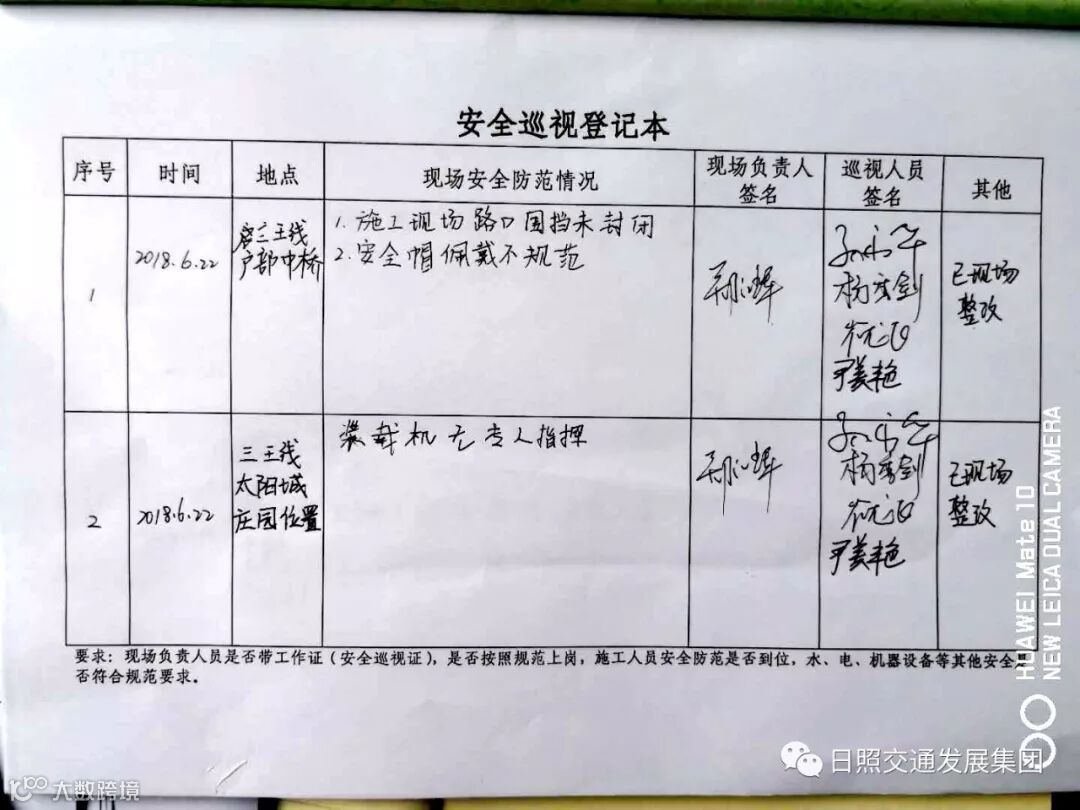 安全巡视登记本
序号
时间
地点
现场安全防范情况
现场负责人
签名
巡视人员
签名
其他
1
2018.6.22
三王线
户部中桥
1. 施工现场路口围挡未封闭
2. 安全帽佩戴不规范
已现场
整改
2
2018.6.22
三王线
太阳城
庄园位置
装载机无专人指挥
已现场
整改
要求：现场负责人员是否带工作证（安全巡视证），是否按照规范上岗，施工人员安全防范是否到位，水、电、机器设备等其他安全
否符合规范要求。
HUAWEI Mate 10
NEW LEICA DUAL CAMERA
日照交通发展集团
大数跨境